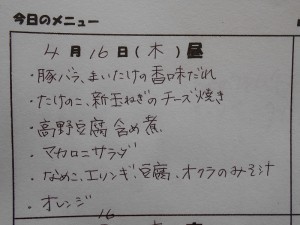 今日のメニュー
4月16日(木)昼
・豚バラ、まいたけの香味だれ
・たけのこ、新玉ねぎのチーズ焼き
・高野豆腐含め煮
・マカロニサラダ
・なめこ、エリンギ、豆腐、オクラのみそ汁
・オレンジ
16